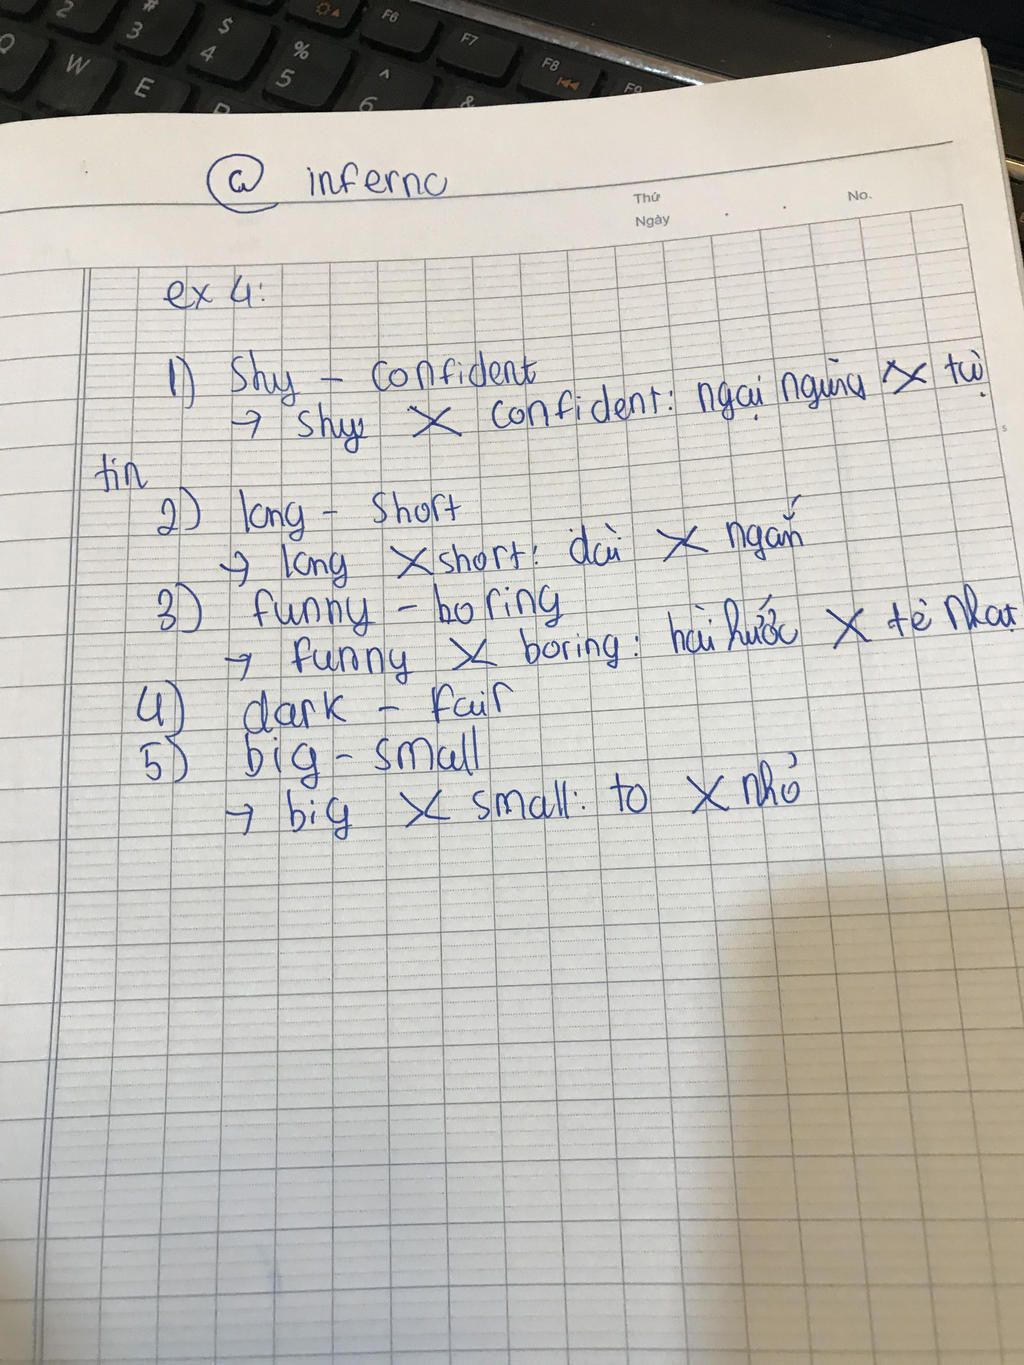 @ inferno
Thứ
Ngày . .
No.
ex 4:
1) Shy - confident
→ shy X confident: ngại ngùng X tự
tin
2) long - Short
→ long X short: dài X ngắn
3) funny - boring
→ funny X boring: hài hước X tẻ nhạt
4) dark - fair
5) big - small
→ big X small: to X nhỏ
2 # 3 $ 4 % 5 ^ 6 &
F6 F7 F8 F9
Q W E